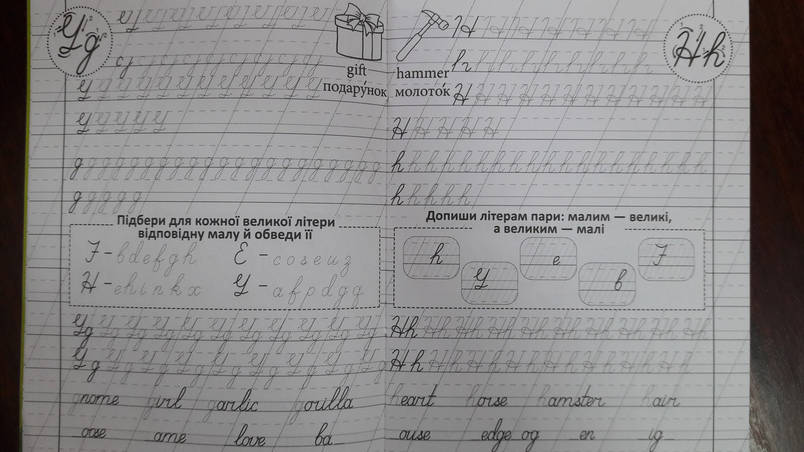 Gg
gift
подару́нок
Підбери для кожної великої літери
відповідну малу й обведи її
F – b d e f g h E – c o s e u z
H – e h i n k x G – a f p d g q
Gg
Gg
gnome girl garlic gorilla
oose ame love ba
Hh
hammer
молото́к
Допиши літерам пари: малим — великі,
а великим — малі
h G e b F
Hh
Hh
heart horse hamster hair
ouse edge og en ig